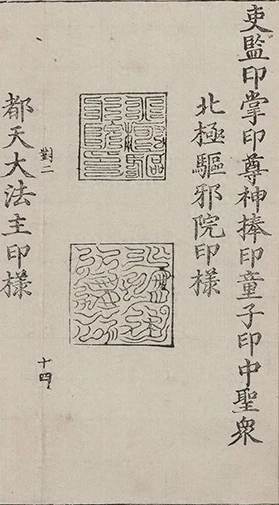 吏監印掌印尊神捧印童子印中聖衆
北極驅邪院印様
對二
十四
都天大法主印様